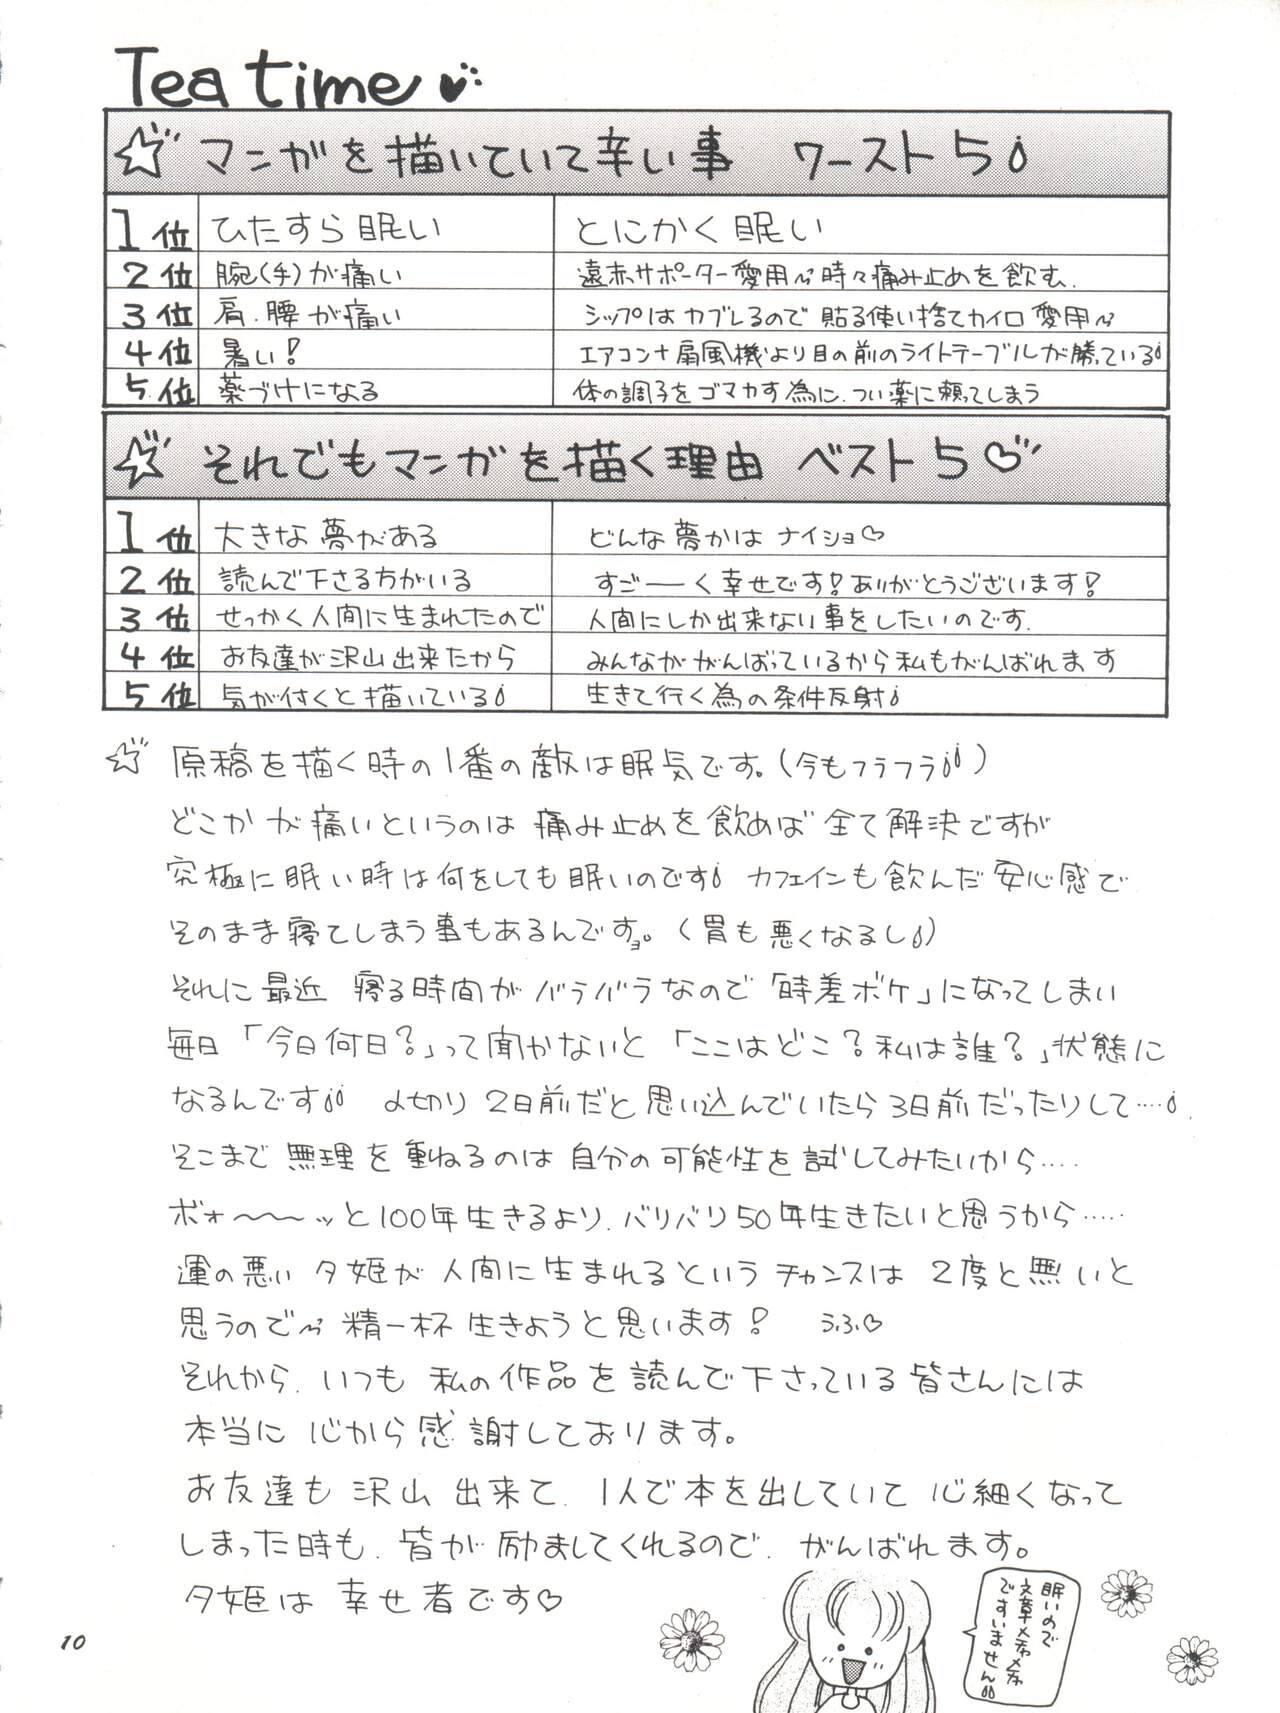 Tea time
マンガを描いていて辛い事 ワースト5
1位 ひたすら眠い とにかく眠い
2位 腕(手)が痛い 遠赤サポーター愛用〜時々痛み止めを飲む、
3位 肩、腰が痛い シップはカブレるので貼る使い捨てカイロ愛用〜
4位 暑い! エアコン+扇風機より目の前のライトテーブルが勝っている
5位 薬づけになる 体の調子をゴマカす為に、つい薬に頼ってしまう
それでもマンガを描く理由 ベスト5♡
1位 大きな夢がある どんな夢かはナイショ♡
2位 読んで下さる方がいる すごーーく幸せです!ありがとうございます!
3位 せっかく人間に生まれたので 人間にしか出来ない事をしたいのです.
4位 お友達が沢山出来たから みんなががんばっているから私もがんばれます
5位 気が付くと描いている 生きて行く為の条件反射
☆ 原稿を描く時の1番の敵は眠気です。(今もフラフラ)
どこかが痛いというのは痛み止めを飲めば全て解決ですが
究極に眠い時は何をしても眠いのです カフェインも飲んだ安心感で
そのまま寝てしまう事もあるんですョ。(胃も悪くなるし)
それに最近 寝る時間がバラバラなので「時差ボケ」になってしまい
毎日「今日何日?」って聞かないと「ここはどこ?私は誰?」状態に
なるんです 〆切り2日前だと思い込んでいたら3日前だったりして‥‥
そこまで無理を重ねるのは自分の可能性を試してみたいから‥‥
ボォ〜〜〜ッと100年生きるより、バリバリ50年生きたいと思うから‥‥‥
運の悪い夕姫が人間に生まれるというチャンスは2度と無いと
思うので〜精一杯生きようと思います! うふ♡
それから、いつも私の作品を読んで下さっている皆さんには
本当に心から感謝しております。
お友達も沢山出来て、1人で本を出していて心細くなって
しまった時も、皆が励ましてくれるので、がんばれます。
夕姫は幸せ者です♡
眠いので
文章メチャメチャ
ですいません
10